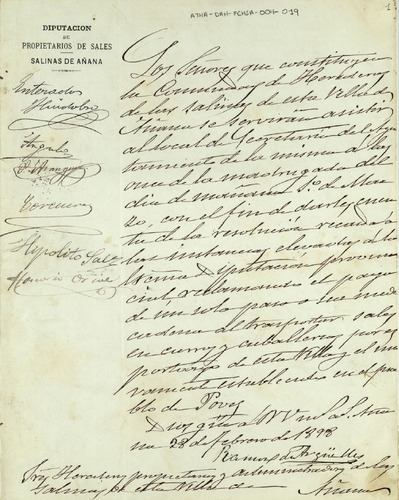 ATHA-DAH-FCHSA-004-019
1
DIPUTACION
DE
PROPIETARIOS DE SALES
SALINAS DE AÑANA
Enterados
Angulo
Hipolito Saez
Honorio
Los Señores que constituyen
la Comunidad de Herederos
de las salinas de esta Villa de
Añana se servirán asistir
al local de Secretaria del Ayun
tamiento de la misma a las
once de la madrugada del
dia de mañana 1º de Mar
zo, con el fin de darles cuen
ta de la resolución recaida a
las instancias elevadas a la
Excma Diputación provin
cial reclamando el pago
de un solo paso o sea media
cadena al trasportar sales
en carros y caballerias por el
portazgo de esta Villa y el nue
vamente establecido en el pue
blo de Poves
Dios güe a V V m. a. s. Aña
na 28 de febrero de 1898
Ramon de Argüelles
Sres Herederos propietarios y administradores de las
Salinas de esta Villa de Añana